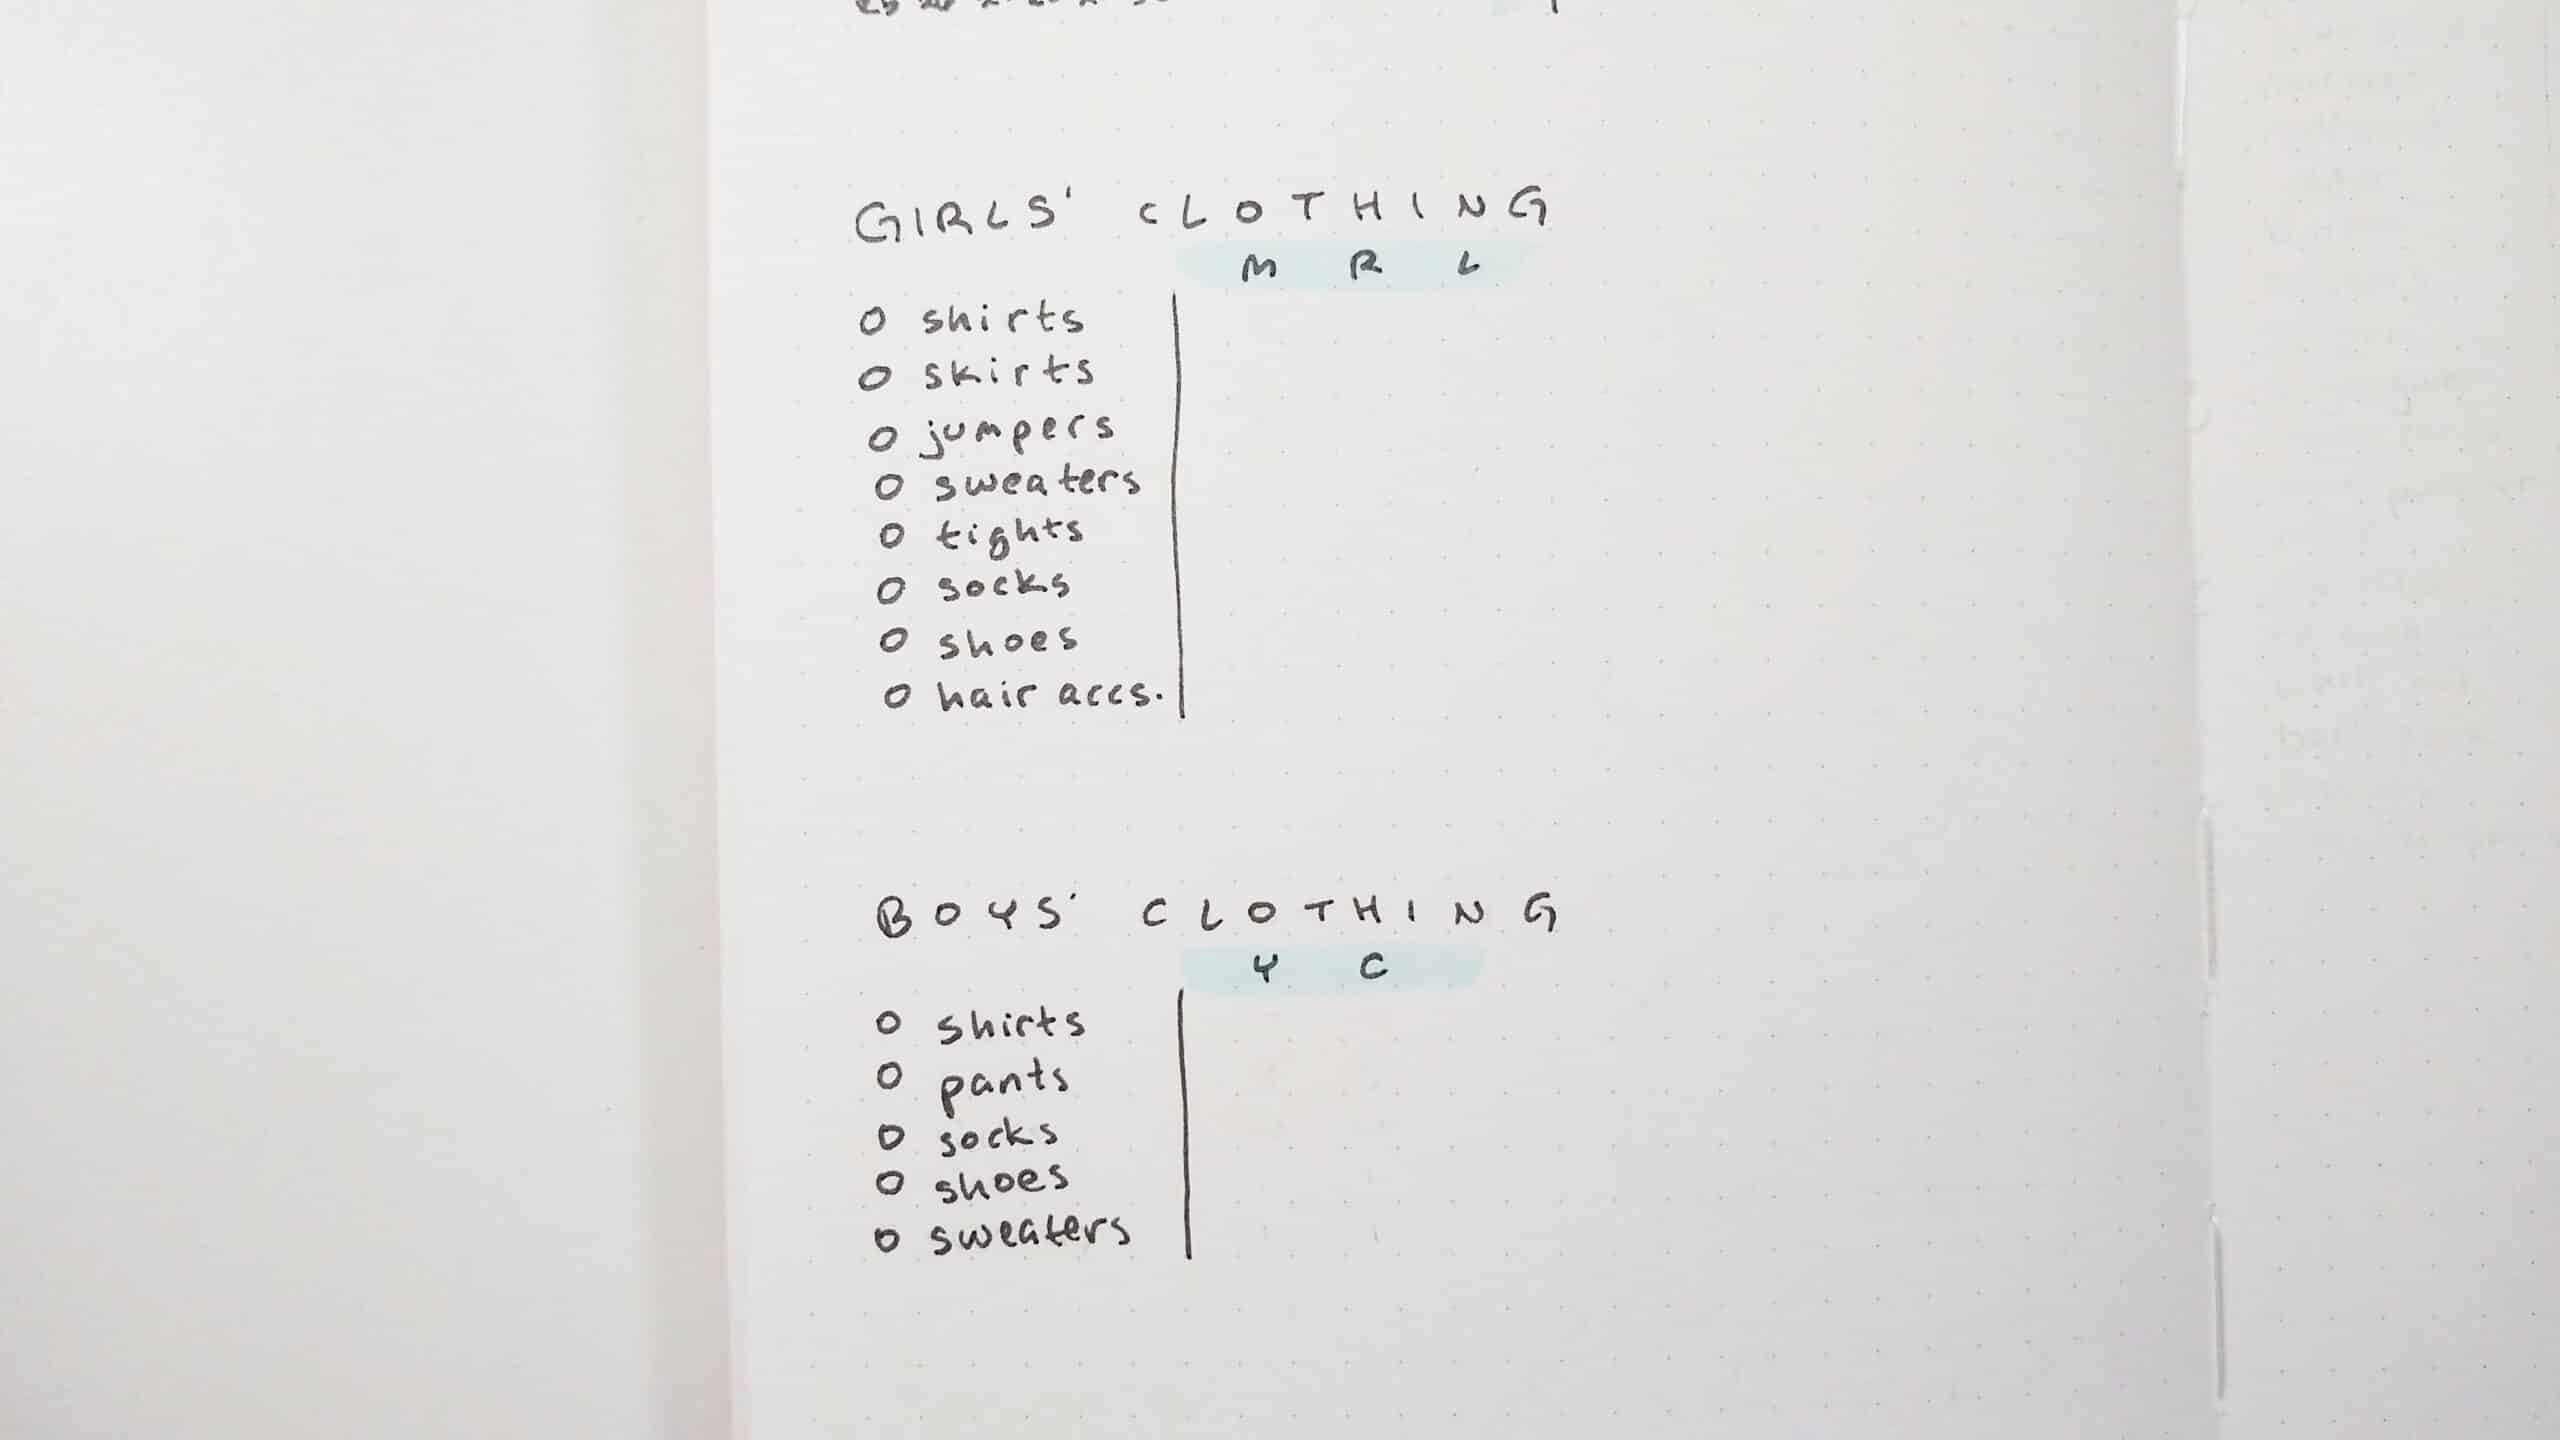 GIRLS' CLOTHING
M R L
O shirts
O skirts
O jumpers
O sweaters
O tights
O socks
O shoes
O hair accs.
BOYS' CLOTHING
Y C
O shirts
O pants
O socks
O shoes
O sweaters